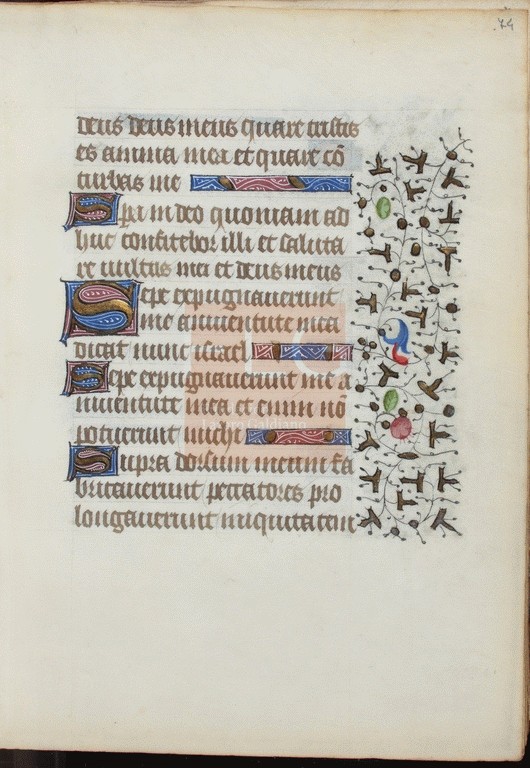 74
deus deus meus quare tristis
es anima mea et quare cō
turbas me
Spera in deo quoniam ad
huc confitebor illi et saluta
re vultus mei et deus meus
Sepe expugnaverunt
me a iuventute mea
dicat nunc israel
Sepe expugnaverunt me a
iuventute mea et enim nō
potuerunt michi
Supra dorsum meum fa
bricaverunt peccatores pro
longaverunt iniquitatem